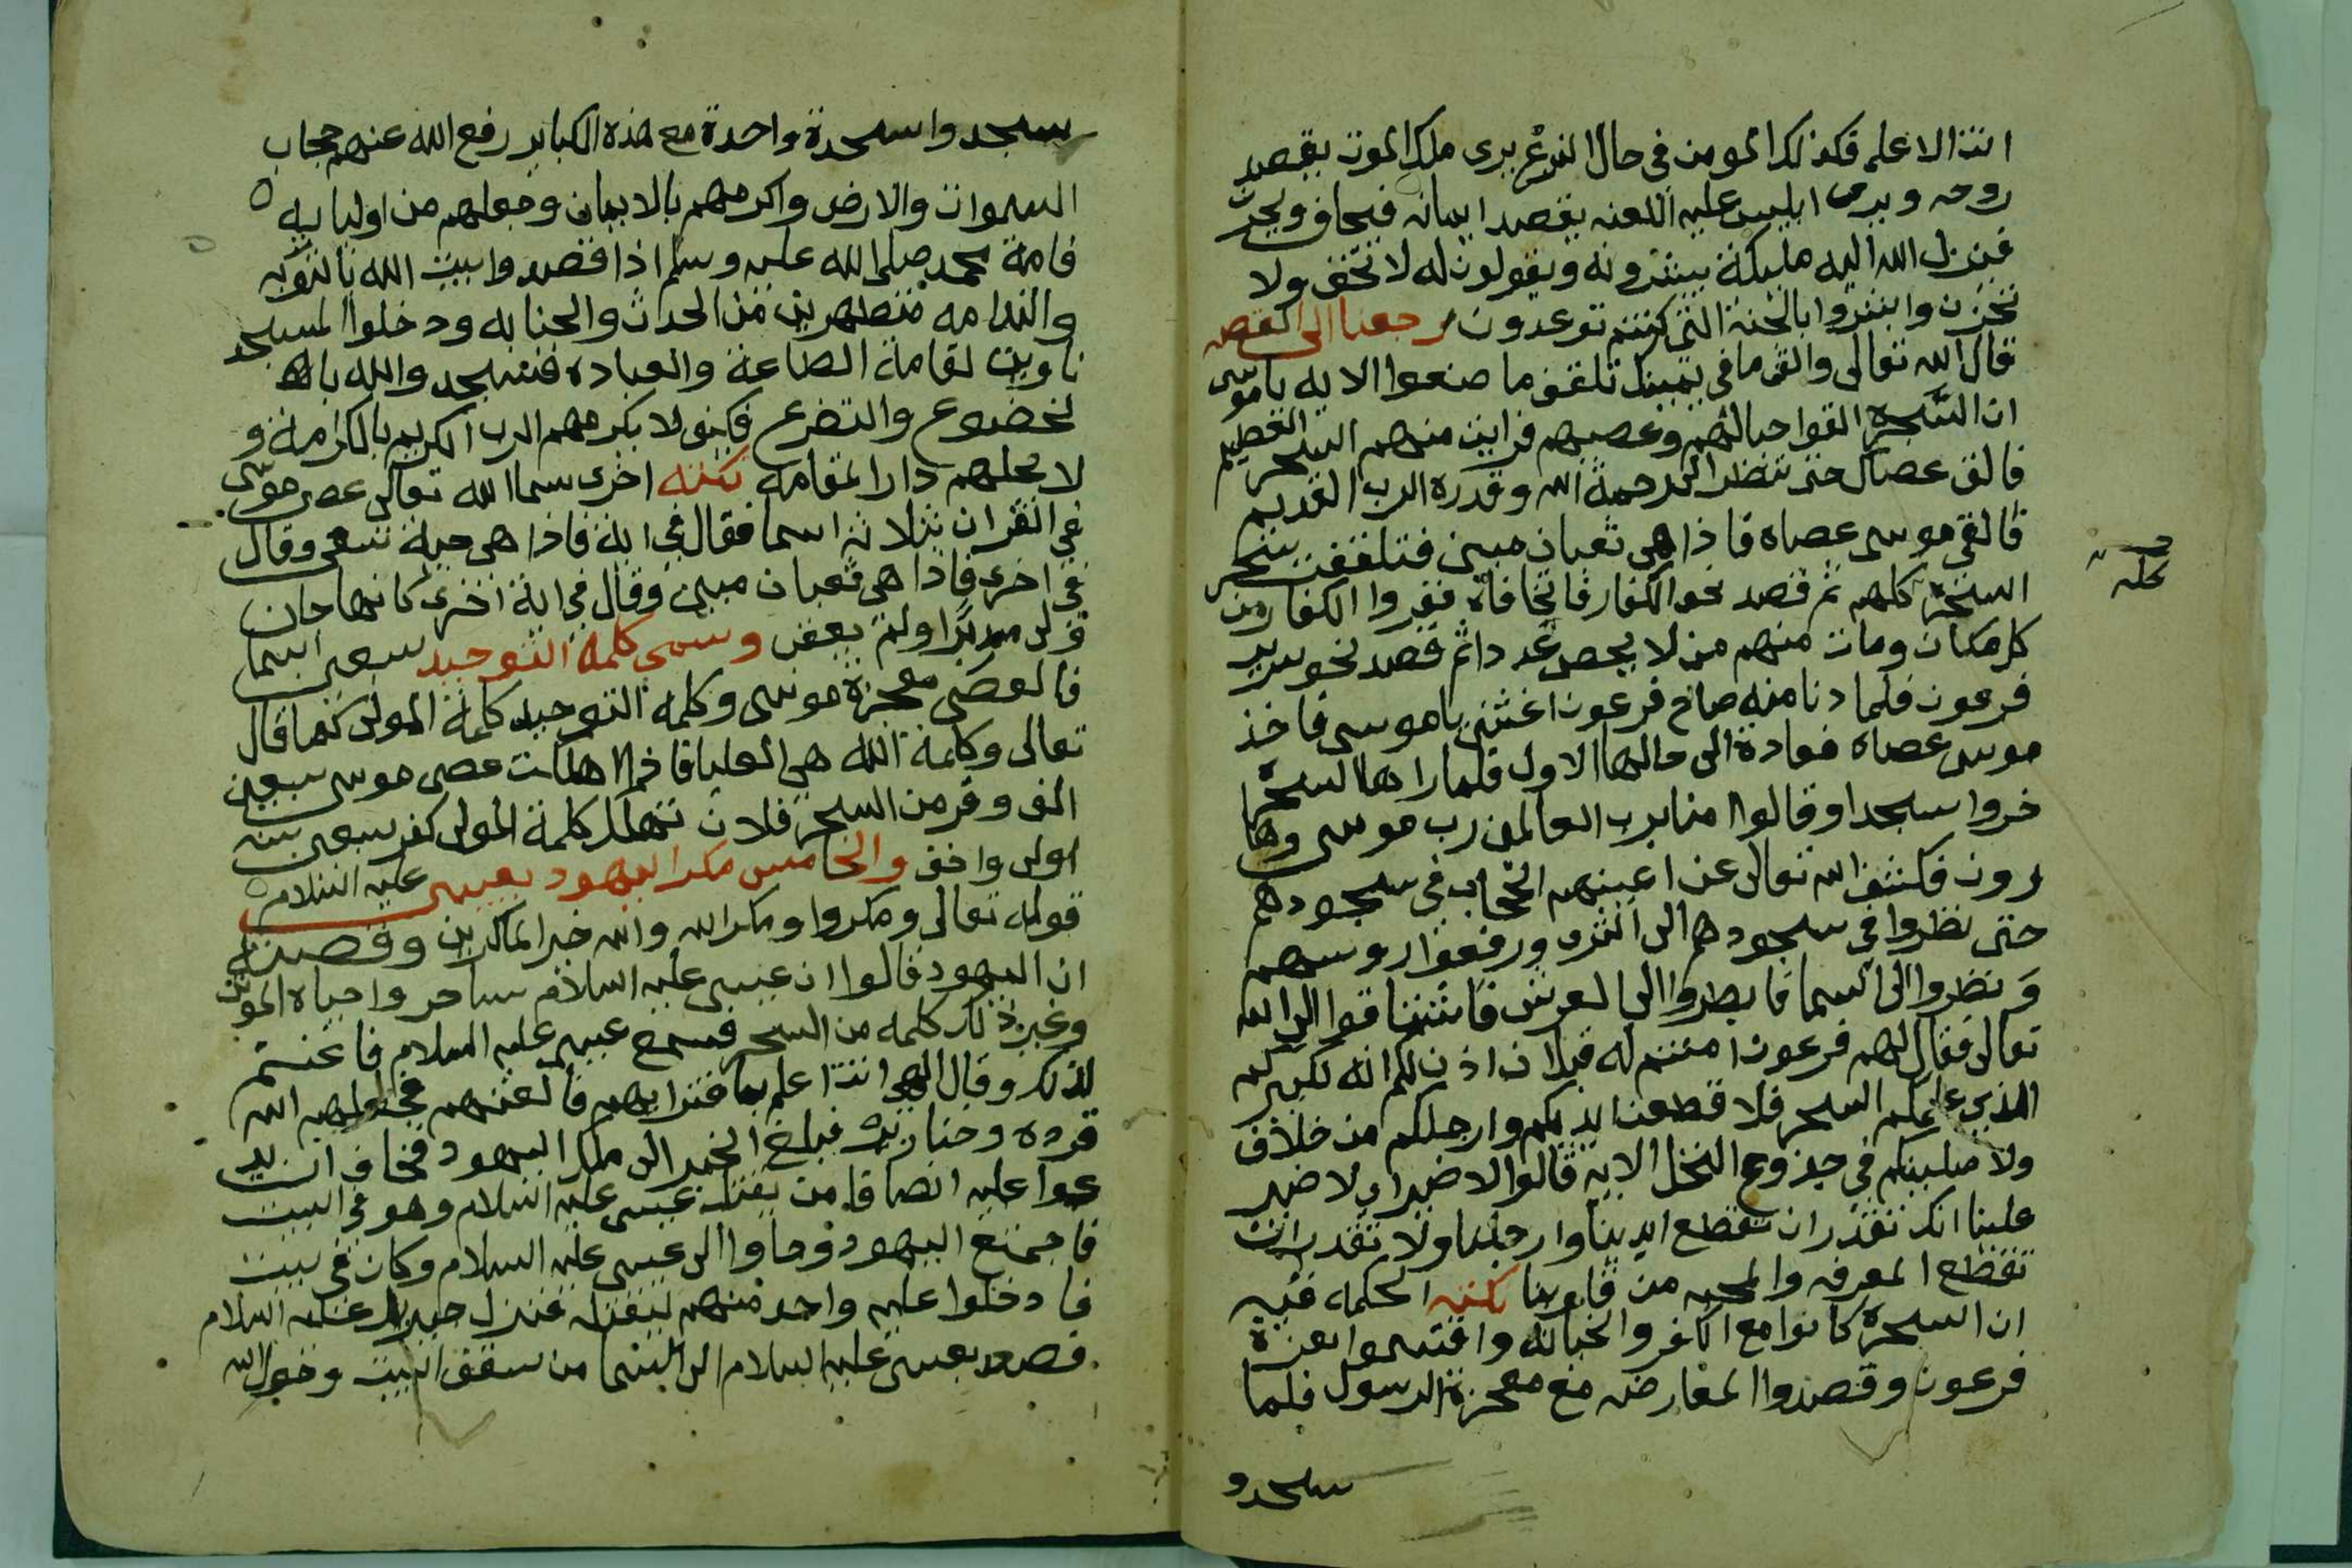 انت الاعلى فكذلك المومن في حال النزع يرى ملك الموت يقصد
روحه ويرى ابليس عليه اللعنه يقصد ايمانه فيخاف ويحزن
فينزل الله اليه مليكة يبشرونه ويقولون له لا تخف ولا
تحزن وابشروا بالجنة التي كنتم توعدون رجعنا الى القصه
قال الله تعالى والق ما في يمينك تلقف ما صنعوا الايه يا موسى
ان السحرة القوا حبالهم وعصيهم فراين منهم السحر العظيم
فالق عصاك حتى تنظر الى رحمة الله وقدرة الرب القديم
فالقى موسى عصاه فاذا هي ثعبان مبين فتلقفت سحر
السحرة كلهم ثم قصد نحو الكفار فففروا الكفار من
كل مكان ومات منهم من لا يحصى عددا ثم قصد نحو سرير
فرعون فلما دنا منه صاح فرعون اغثني يا موسى فاخذ
موسى عصاه فعادة الى حالها الاول فلما راها السحرة
خروا سجدا وقالوا امنا برب العالمين رب موسى وها
رون فكشف الله تعالى عن اعينهم الحجاب في سجودهم
حتى نظروا في سجودهم الى الثرى ورفعوا روسهم
ونظروا الى السما فابصروا الى العرش فاشتاقوا الى الله
تعالى فقال لهم فرعون امنتم له قبل ان اذن لكم انه لكبيركم
الذي علمكم السحر فلا قطعن ايديكم وارجلكم من خلاف
ولاصلبنكم في جذوع النخل الايه قالوا لا ضير اي لا ضير
علينا انك تقدر ان تقطع ايدينا وارجلنا ولا تقدر ان
تقطع المعرفه والمحبه من قلوبنا نكته الحكمه فيه
ان السحرة كانوا مع الكفر والخباله واقتسموا بعزة
فرعون وقصدوا المعارضه مع معجزة الرسول فلما
سجدو
كله
سجدوا سجدة واحدة مع هذه الكباير رفع الله عنهم حجاب
السموات والارض واكرمهم بالايمان وجعلهم من اوليايه
فامة محمد صلى الله عليه وسلم اذا قصدوا بيت الله بالتوبه
والندامه متطهرين من الحداث والجنابه ودخلوا المسجد
ناوين لقامة الطاعة والعباده فتسجدوا لله با
لخضوع والتضرع فكيف لا يكرمهم الرب الكريم بالكرامة و
لا يحلهم دار المقامه نكته اخرى سما الله تعالى عصى موسى
في القران بثلاثه اسما فقال في اية فاذا هي حية تسعى وقال
في اخرى فاذا هي ثعبان مبين وقال في اية اخرى كانها جان
ولى مدبرا ولم يعقب وسمى كلمة التوحيد سبعين اسما
فالعصى معجزة موسى وكلمه التوحيد كلمة المولى كما قال
تعالى وكلمة الله هي العليا فاذا اهلكت عصى موسى سبعين
الف وقر من السحر فلان تهلك كلمة المولى كفر سبعين سنه
اولى واحق والخامس مكر اليهود بعيسى عليه السلام
قوله تعالى ومكروا ومكر الله والله خير الماكرين وقصته
ان اليهود قالوا ان عيسى عليه السلام ساحر واحياه الموتى
وغير ذلك كلمه من السحر فسمع عيسى عليه السلام فاغتم
لذلك وقال الهي انت اعلم بما فترايهم فالعنهم فجعلهم الله
قرده وخنازير فبلغ الخبر الى ملك اليهود فخاف ان يد
عوا عليه ايضا فامر بقتل عيسى عليه السلام وهو في البيت
فاجمتع اليهود وجاوا الى عيسى عليه السلام وكان في بيت
فادخلوا عليه واحد منهم ليقتله فنزل جبريل عليه السلام
فصعد بعيسى عليه السلام الى السما من سقف البيت وحول الله